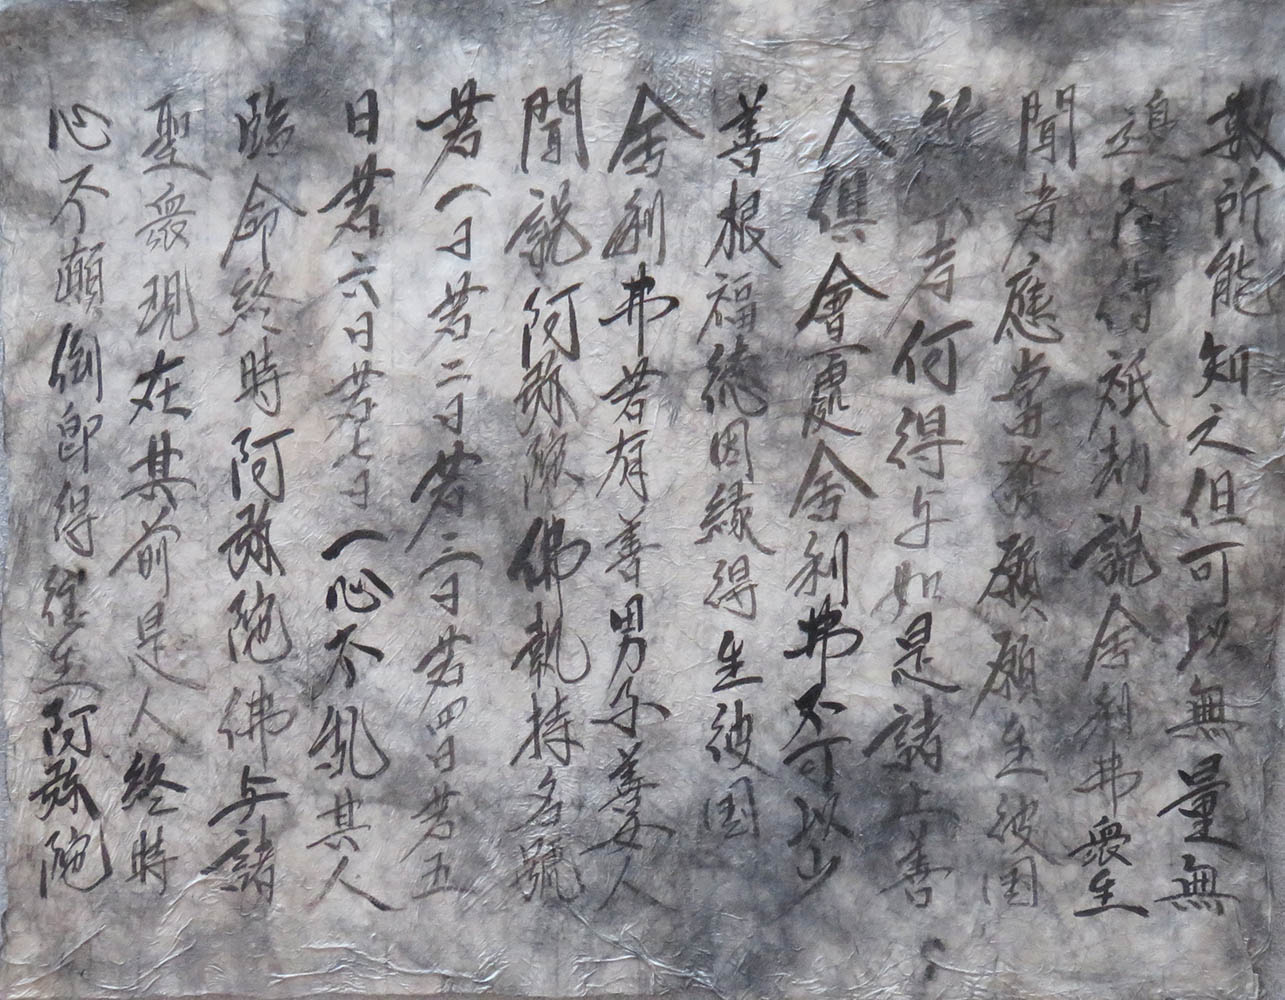 數所能知之但可以無量無
邊阿僧祇劫說舍利弗衆生
聞者應當發願願生彼国
所以者何得与如是諸上善
人俱會一處舍利弗不可以少
善根福德因緣得生彼国
舍利弗若有善男子善女人
聞說阿弥陀佛執持名號
若一日若二日若三日若四日若五
日若六日若七日一心不亂其人
臨命終時阿弥陀佛与諸
聖衆現在其前是人終時
心不顛倒即得往生阿弥陀